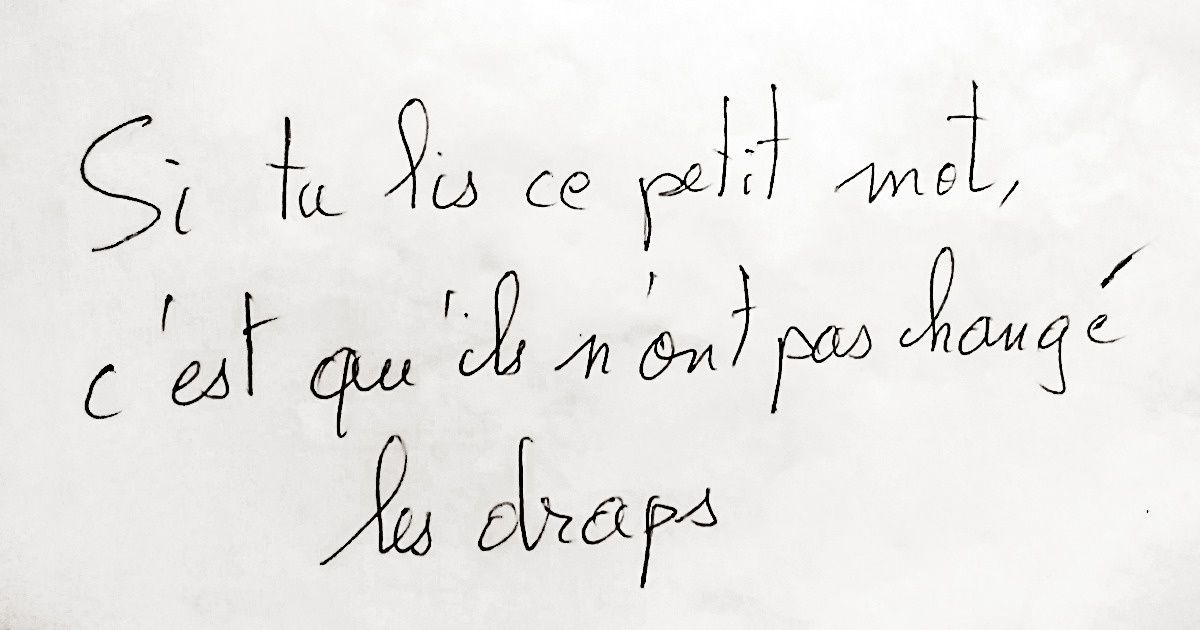 Si tu lis ce petit mot,
c'est qu'ils n'ont pas changé
les draps